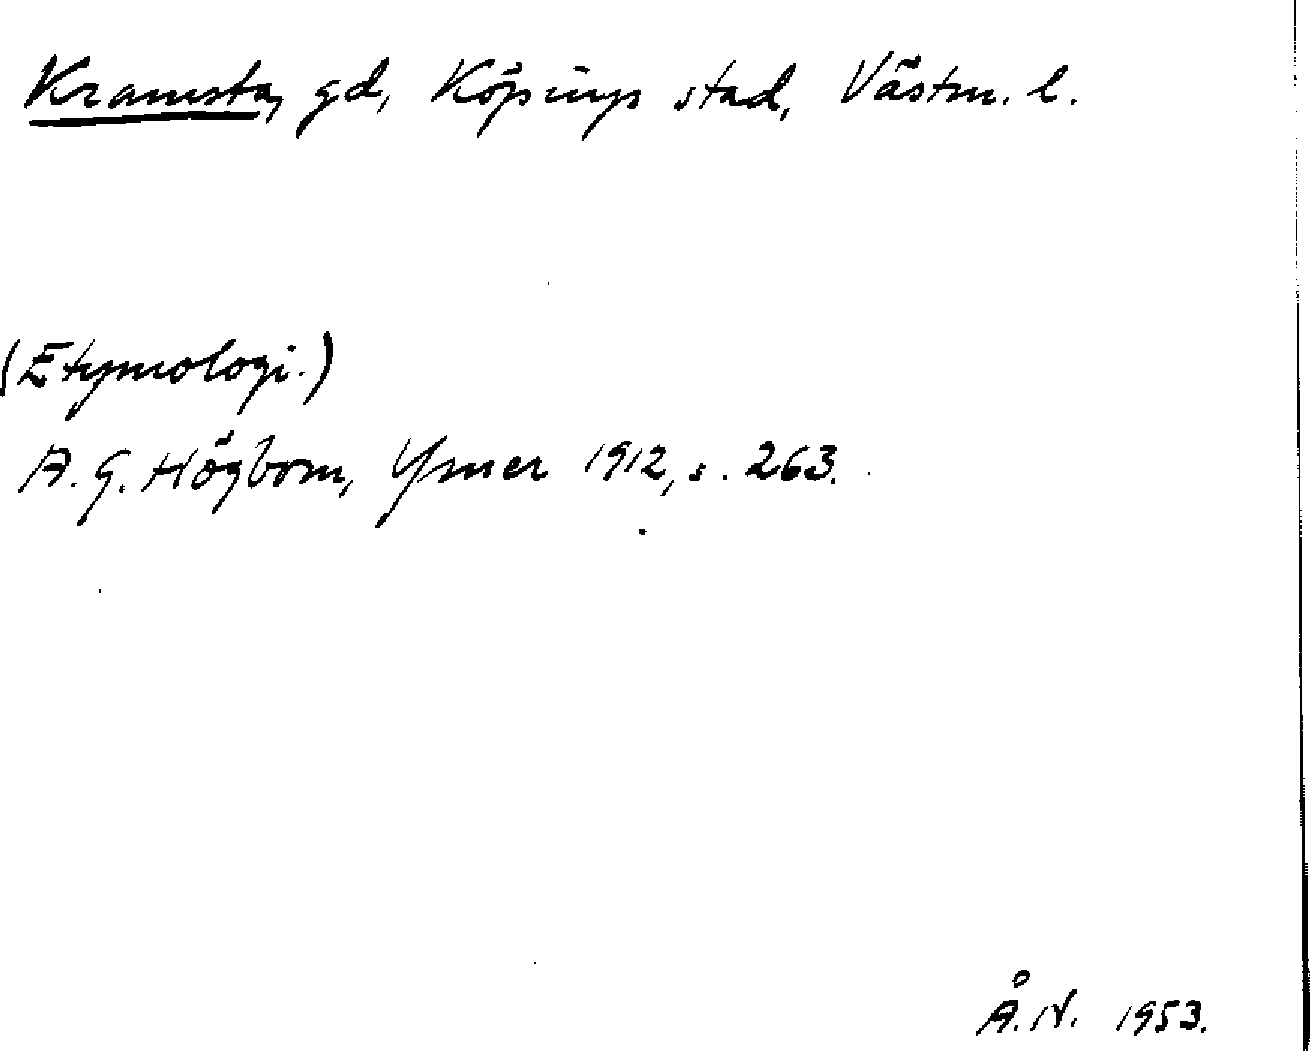 Kramsta, gd, Köpings stad, Västm. l.
(Etymologi.)
A. G. Högbom, Ymer 1912, s. 263.
Å. N. 1953.